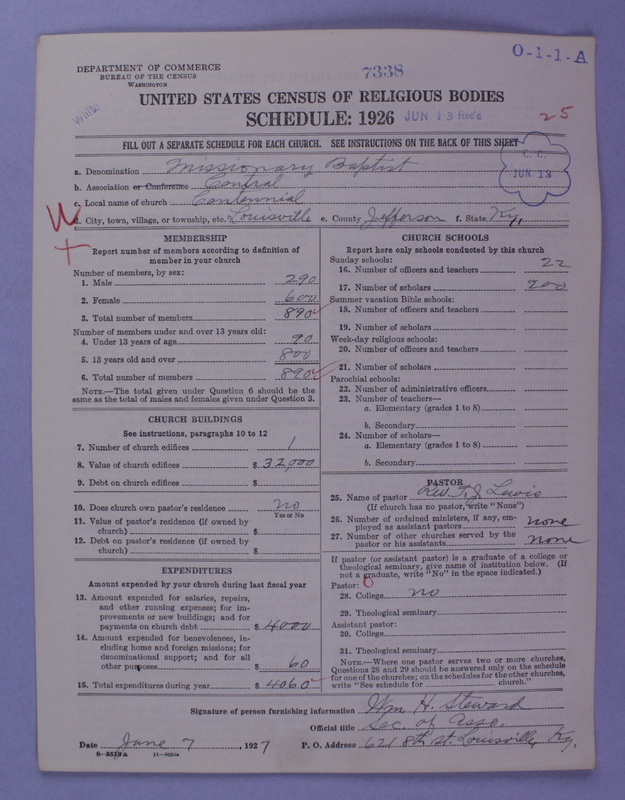 O-1-1-A
7338
DEPARTMENT OF COMMERCE
BUREAU OF THE CENSUS
WASHINGTON
UNITED STATES CENSUS OF RELIGIOUS BODIES
SCHEDULE: 1926 JUN 13 Rec'd
25
FILL OUT A SEPARATE SCHEDULE FOR EACH CHURCH. SEE INSTRUCTIONS ON THE BACK OF THIS SHEET
C. C.
JUN 13
a. Denomination Missionary Baptist
b. Association or Conference Central
c. Local name of church Centennial
d. City, town, village, or township, etc. Louisville e. County Jefferson f. State Ky.
MEMBERSHIP
Report number of members according to definition of
member in your church
Number of members, by sex:
1. Male 290
2. Female 600
3. Total number of members 890
Number of members under and over 13 years old:
4. Under 13 years of age 90
5. 13 years old and over 800
6. Total number of members 890
NOTE.—The total given under Question 6 should be
same as the total of males and females given under Question 3.
CHURCH BUILDINGS
See instructions, paragraphs 10 to 12
7. Number of church edifices 1
8. Value of church edifices $ 32,000
9. Debt on church edifices $
10. Does church own pastor's residence no
Yes or No
11. Value of pastor's residence (if owned by
church) $
12. Debt on pastor's residence (if owned by
church) $
EXPENDITURES
Amount expended by your church during last fiscal year
13. Amount expended for salaries, repairs,
and other running expenses; for im-
provements or new buildings; and for
payments on church debt $ 4000
14. Amount expended for benevolences, in-
cluding home and foreign missions; for
denominational support; and for all
other purposes $ 60
15. Total expenditures during year $ 4060
CHURCH SCHOOLS
Report here only schools conducted by this church
Sunday schools:
16. Number of officers and teachers 22
17. Number of scholars 200
Summer vacation Bible schools:
18. Number of officers and teachers
19. Number of scholars
Week-day religious schools:
20. Number of officers and teachers
21. Number of scholars
Parochial schools:
22. Number of administrative officers
23. Number of teachers—
a. Elementary (grades 1 to 8)
b. Secondary
24. Number of scholars—
a. Elementary (grades 1 to 8)
b. Secondary
PASTOR
25. Name of pastor Rev. T. J. Lewis
(If church has no pastor, write "None")
26. Number of ordained ministers, if any, em-
ployed as assistant pastors none
27. Number of other churches served by the
pastor or his assistants none
If pastor (or assistant pastor) is a graduate of a college or
theological seminary, give name of institution below. (If
not a graduate, write "No" in the space indicated.)
Pastor: 0
28. College no
29. Theological seminary
Assistant pastor:
30. College
31. Theological seminary
NOTE.—Where one pastor serves two or more churches,
Questions 28 and 29 should be answered only on the schedule
for one of the churches; on the schedules for the other churches,
write "See schedule for church."
Signature of person furnishing information Wm H. Steward
Official title Sec. of Asso.
Date June 7, 1927 P. O. Address 621 8th St. Louisville, Ky.